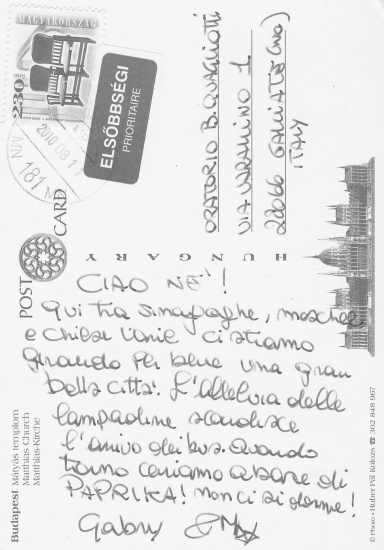 MAGYARORSZÁG
230
2010 08 11
181
ELSŐBBSÉGI
PRIORITAIRE
ORATORIO B. QUAGLIOTTI
VIA VARALLINO 1
28066 GALLIATE (NO)
ITALY
POST CARD
HUNGARY
CIAO NE'!
Qui tra sinagoghe, moschee
e chiese ci stiamo
girando per bene una gran
bella città. L'alleluia delle
lampadine scandisce
l'arrivo dei bus. Quando
torno ceniamo a base di
PAPRIKA! non ci si dorme!
Gabry
Budapest Mátyás templom
Matthias Church
Matthias-Kirche
© Photo • Huber Pál Kolozs ☎ 302 848 967